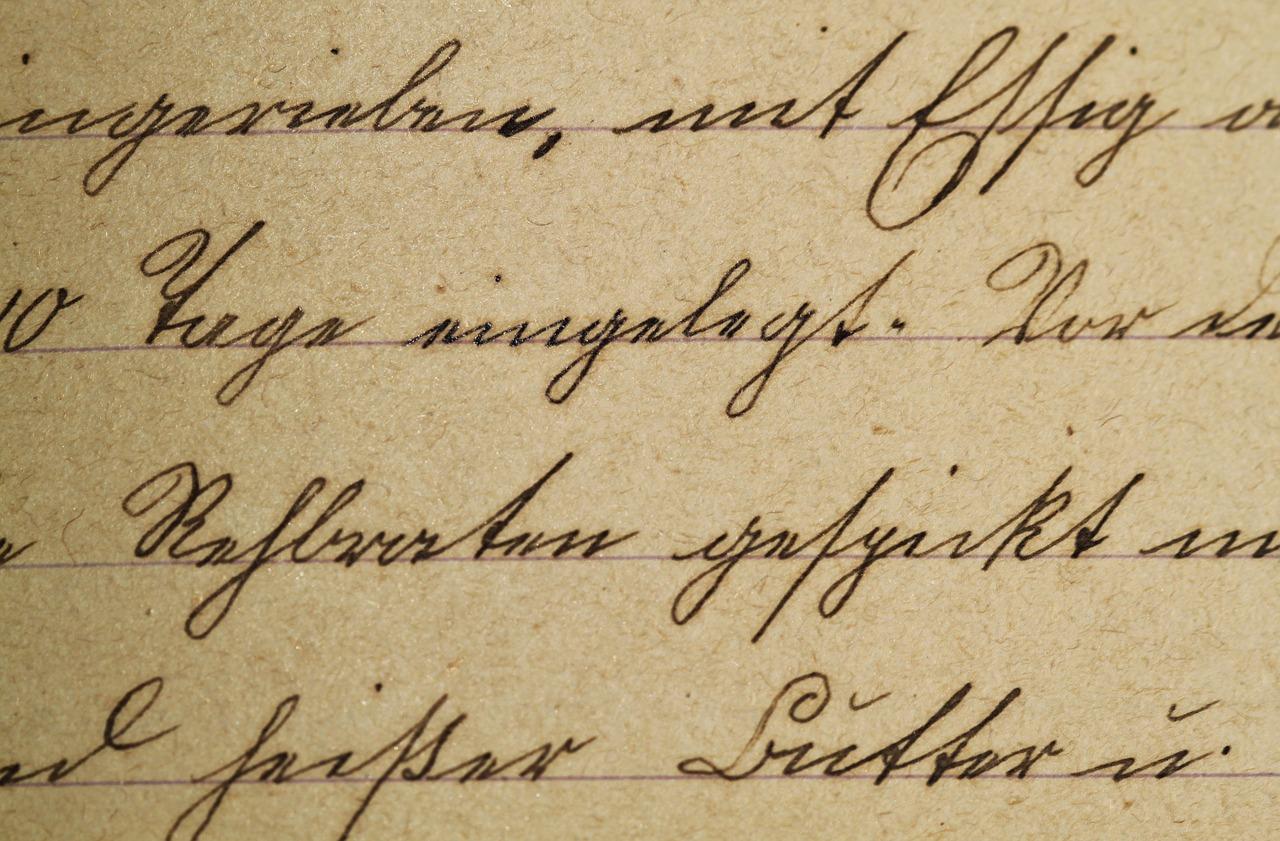 ingerieben, mit Essig a
10 Tage eingelegt. Vor de
e Rehbraten gespickt in
nd heißer Butter u.